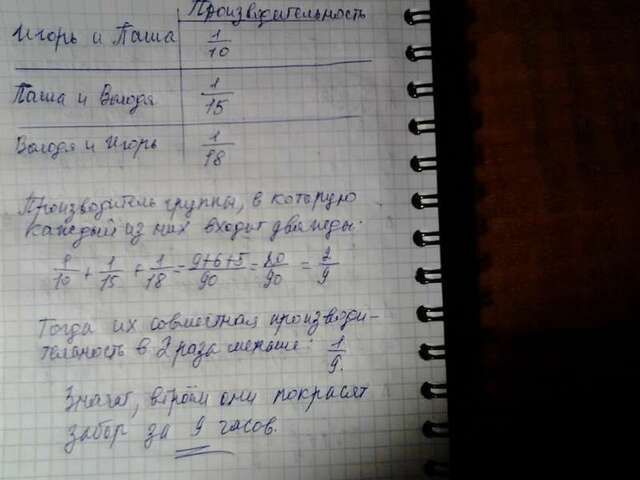 Производительность
Игорь и Паша 1/10
Паша и Володя 1/15
Володя и Игорь 1/18
Производитель группы, в которую
каждый из них входит дважды:
1/10 + 1/15 + 1/18 = 9+6+5/90 = 20/90 = 2/9
Тогда их совместная производи-
тельность в 2 раза меньше: 1/9.
Значит, втроём они покрасят
забор за 9 часов.